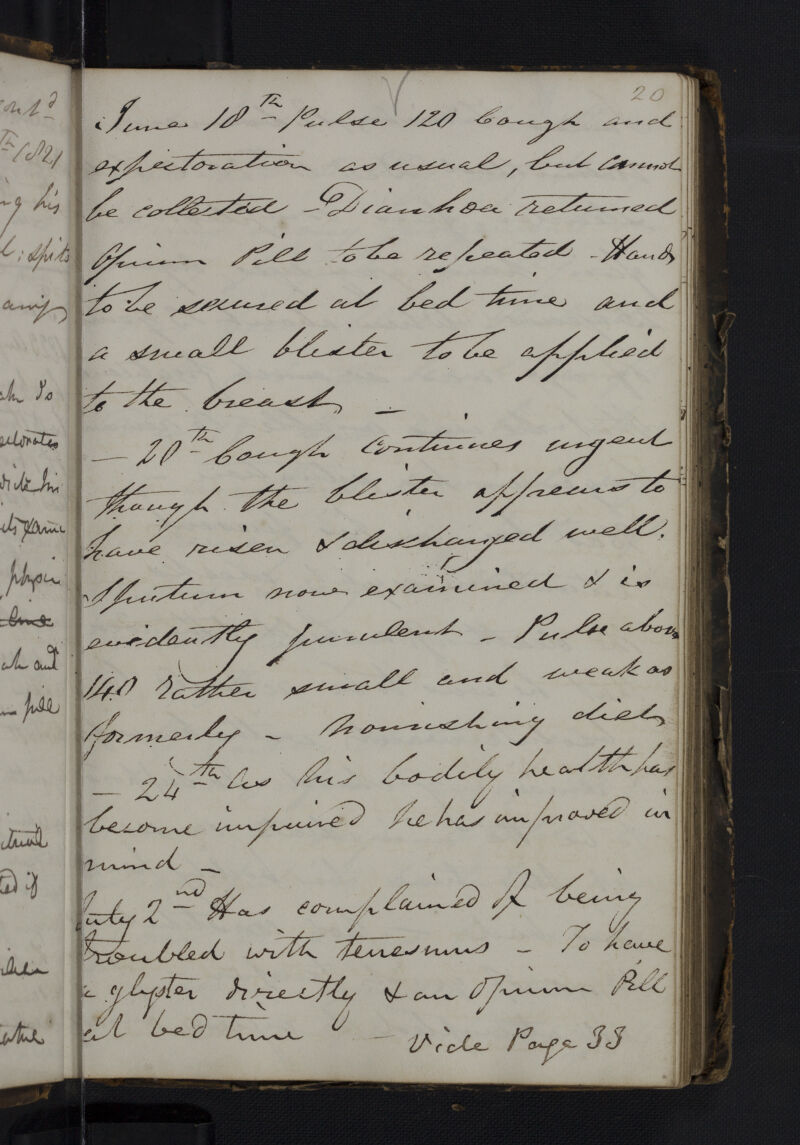 20
June 18th Pulse 120 Cough and
expectoration as usual, but cannot
be collected - Diarrhoea returned
Opium Pill to be repeated - Hands
to be secured at bed time and
a small blister to be applied
to the breast -
- 20th Cough continues urgent
though the blister appears to
have risen & discharged well.
Sputum now examined & is
evidently purulent - Pulse above
140 rather small and weak as
formerly - nourishing diet
- 24th As his bodily health has
become impaired he has improved in
mind -
July 2nd Has complained of being
troubled with tenesmus - To have
a glyster directly & an Opium Pill
at bed time - Vide Page 33
contd
1821
his
spits
physic
and
pill
if